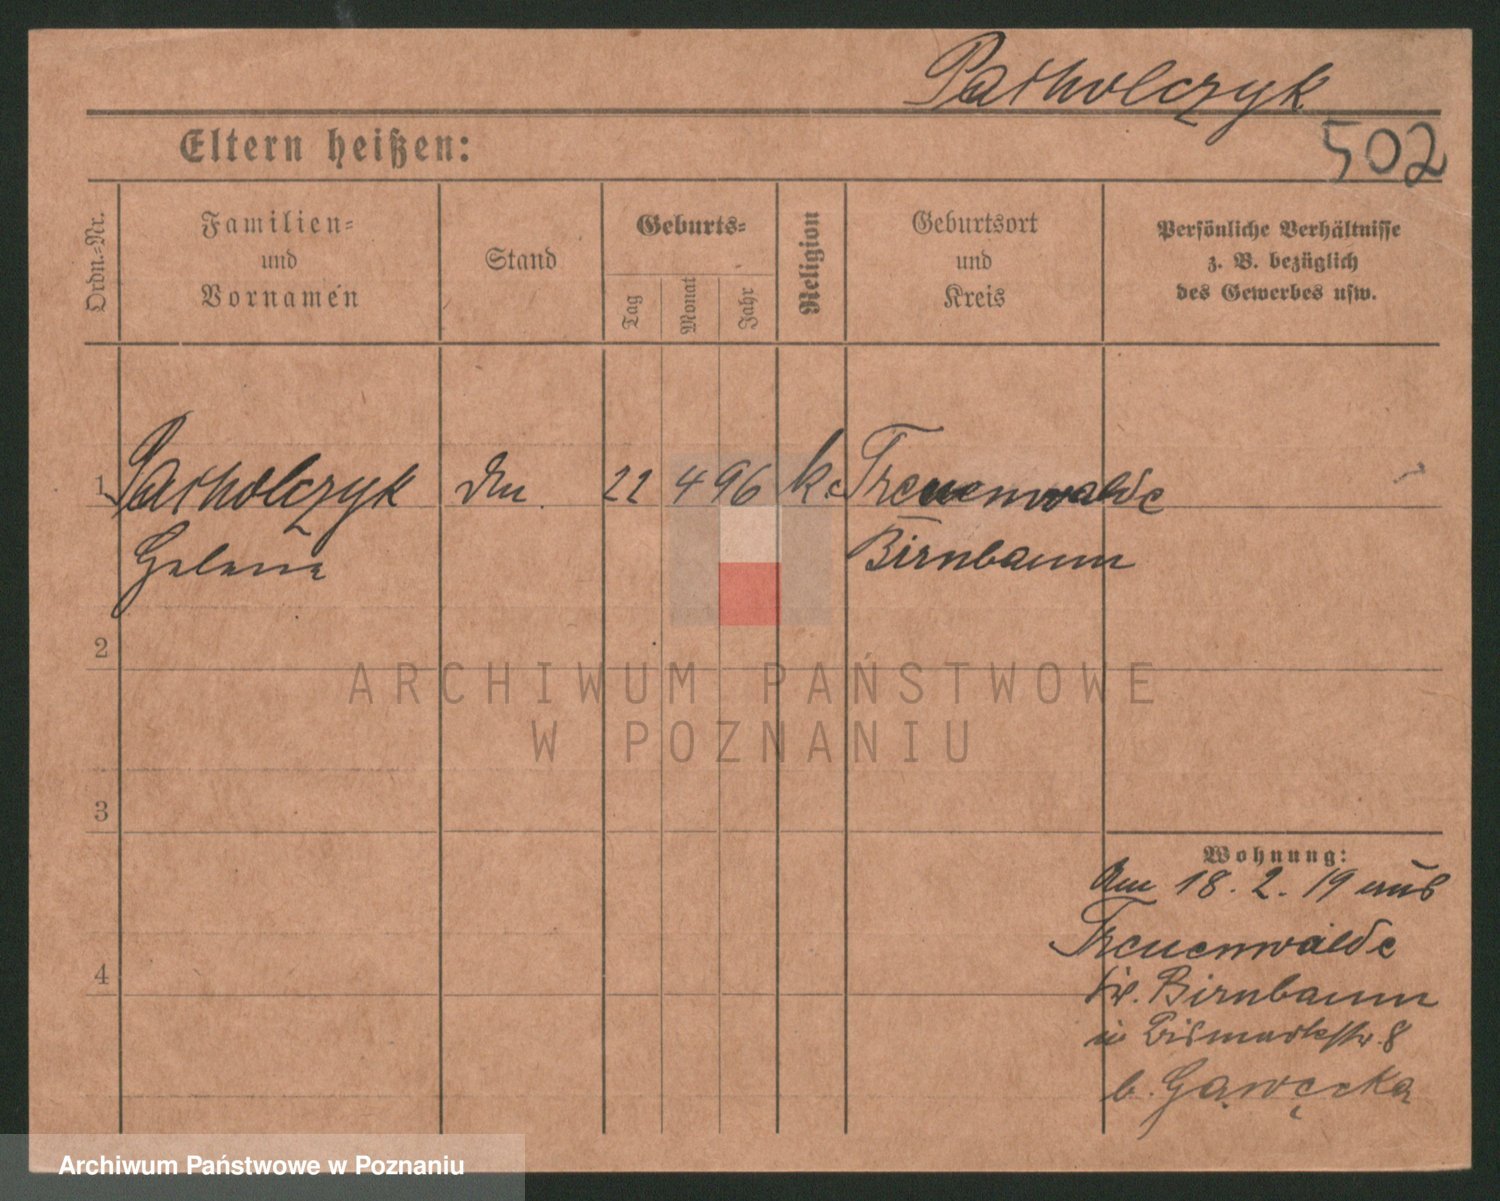 Patholczyk
502
Eltern heißen:
Ordn.-Nr.
Familien-
und
Vornamen
Stand
Geburts-
Tag
Monat
Jahr
Religion
Geburtsort
und
Kreis
Persönliche Verhältnisse
z. B. bezüglich
des Gewerbes usw.
1 Patholczyk 22 4 96 k. Treuenwalde
Helena Birnbaum
2
ARCHIWUM PAŃSTWOWE
W POZNANIU
3
Wohnung:
Am 18. 2. 19 aus
Treuenwalde
Kr. Birnbaum
4
in Bismarkstr. 8
b. Gawęcka
Archiwum Państwowe w Poznaniu